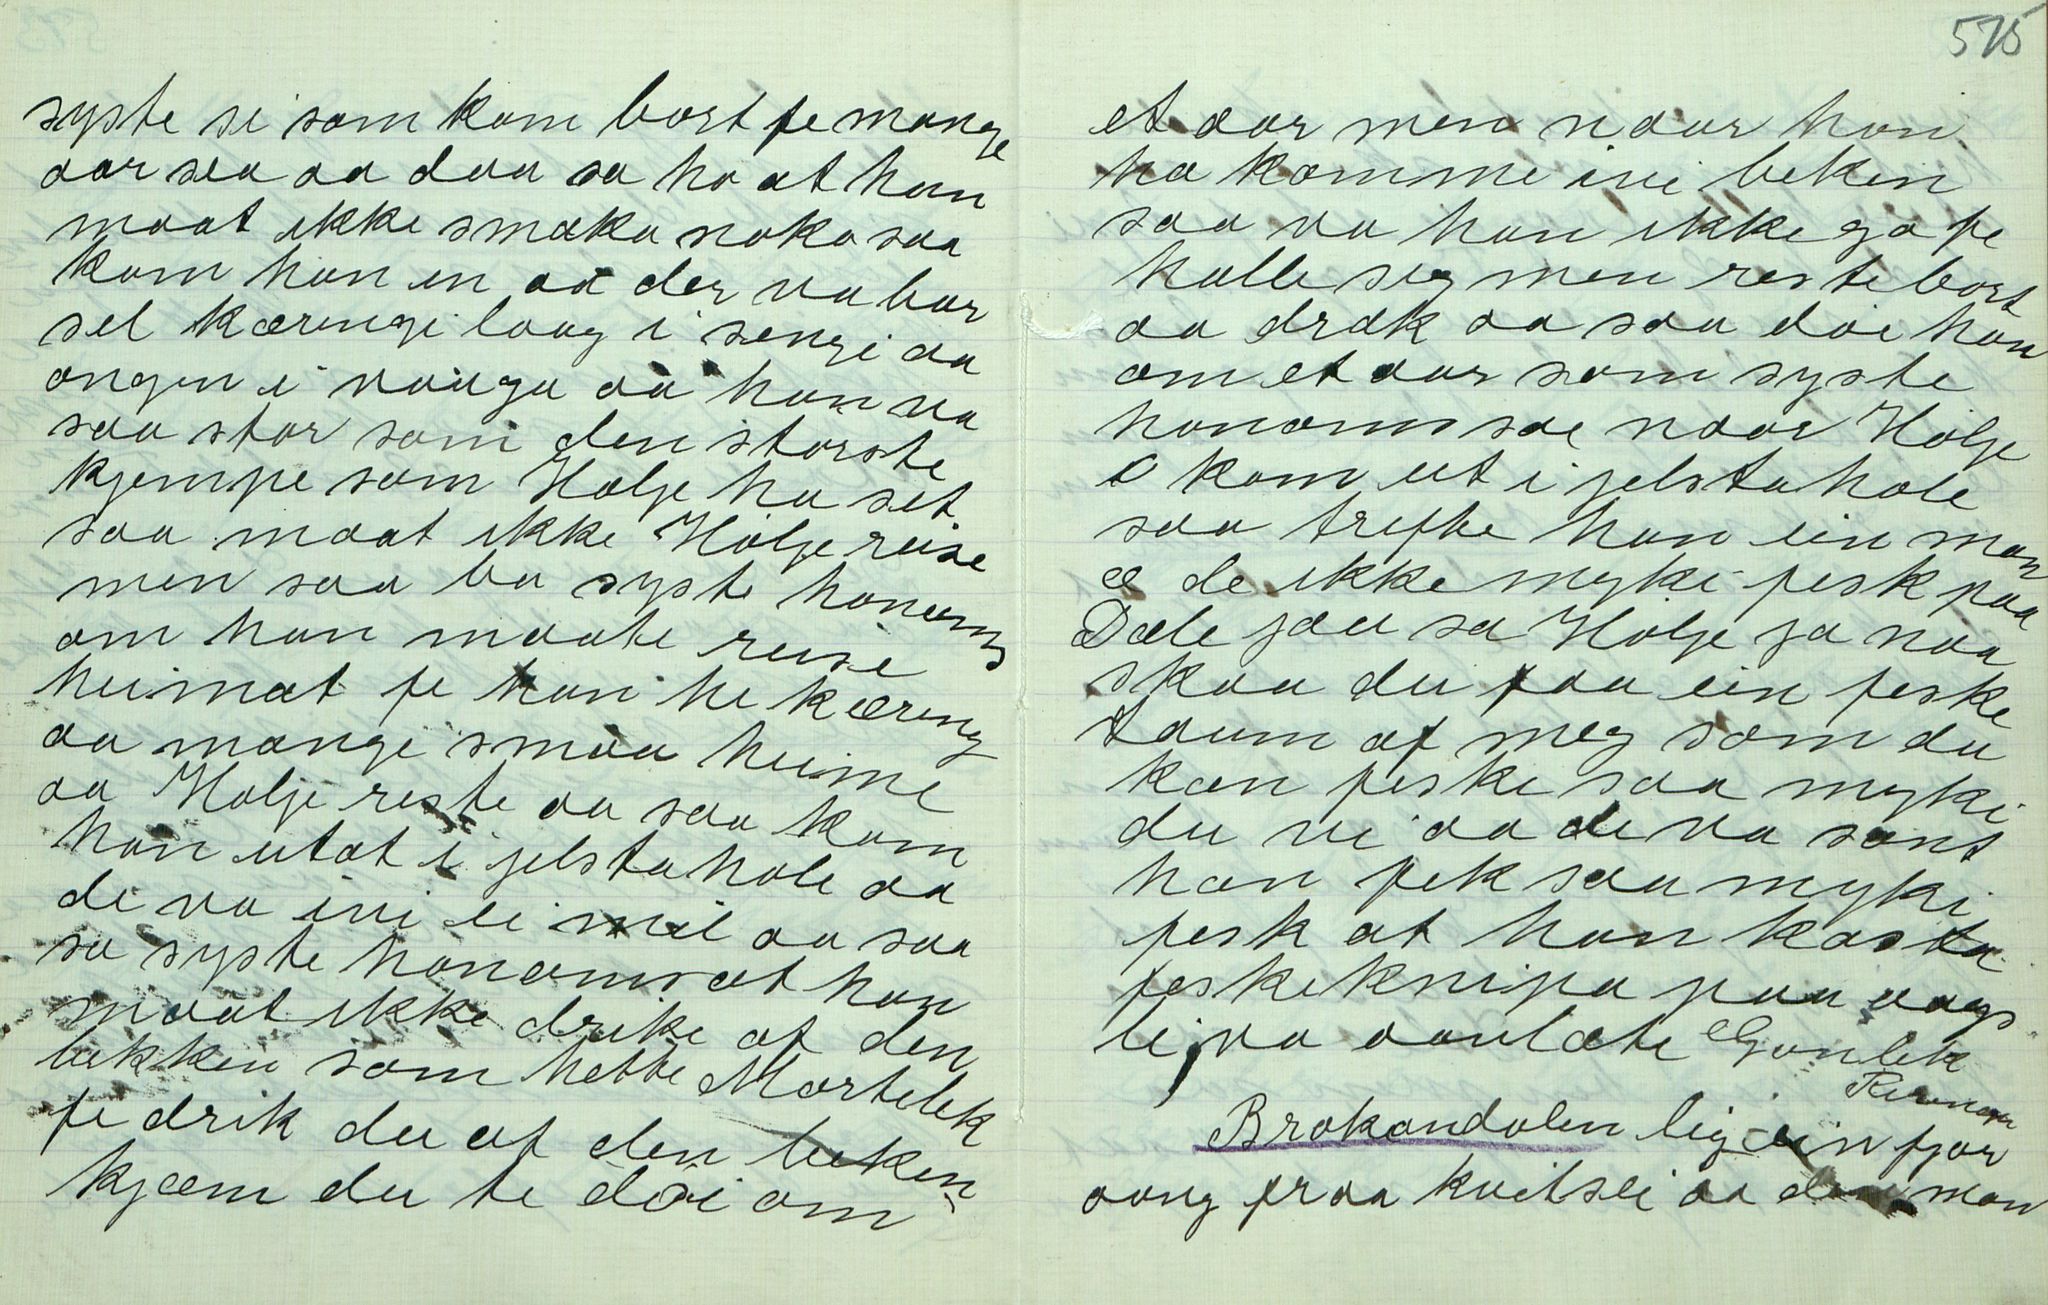 575
syste si som kom bort fe mange
aar sea aa daa sa ho at han
maat ikke smaka noka saa
kom han in aa der va bar
sel kæringi laag i sengi aa
ongen i vauga aa han va
saa stor som den största
kjempe som Holje ha set
saa maat ikke Holje reise
men saa ba syste honoms
om han maate reise
heimat fe han he kæring
aa mange smaa heime
aa Holje reste aa saa kom
han utat i jelstahole aa
de va ini ei mil aa saa
sa syste honoms at han
maat ikke drike af den
bekken som hette Martebek
fe drik du af den beken
kjæm du te döi om
et aar men naar han
ha komme ivi beken
saa va han ikke go fe
halle seg men reste bort
aa drak aa saa döe han
om et aar som syste
honoms sae naar Holje
kom ut i jelstahole
saa trefte han ein man
æ de ikke myki fesk paa
Dale jau sa Holje ja naa
skaa du faa ein feske
taum af meg som du
kan feske saa myki
du vi aa de va sant
han fek saa myki
fesk at han kasta
feskeknipa paa vags
lei va aanlate Gonlek
Brokandalen lig ein fjor
oong fraa kvitsei aa man